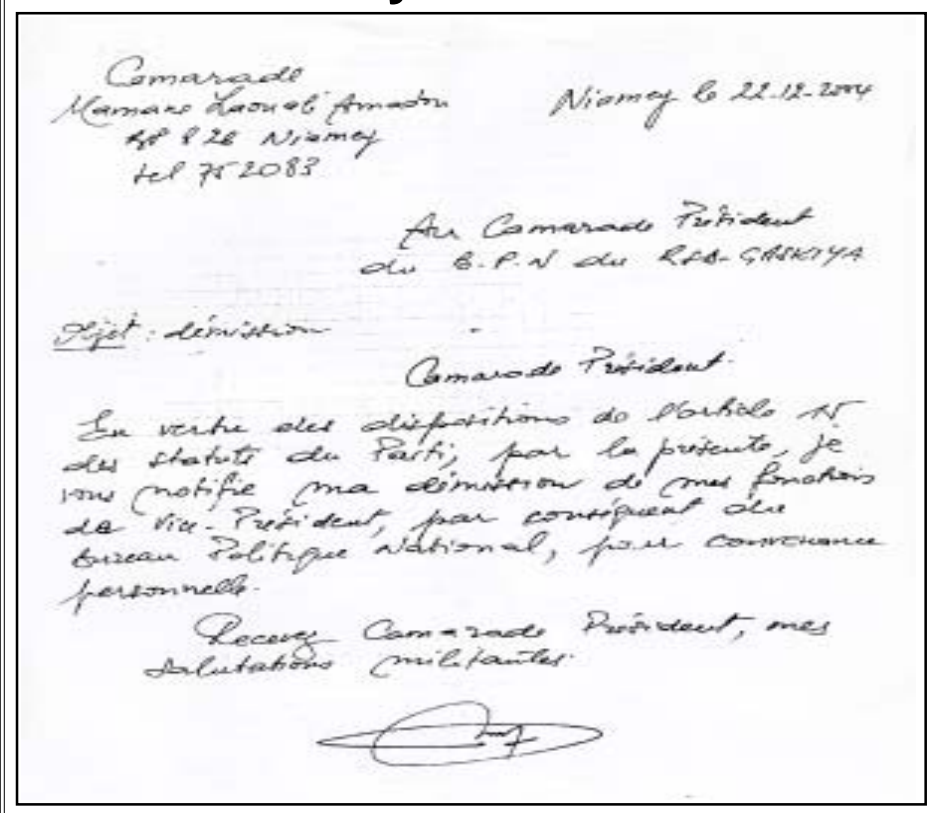 Camarade
Mamane Laouali Amadou
BP 826 Niamey
tel 752083
Niamey le 22-12-2004
Au Camarade Président
du B.P.N du RSD-GASKIYA
Objet : démission
Camarade Président
En vertu des dispositions de l'article 15
des statuts du Parti, par la présente, je
vous notifie ma démission de mes fonctions
de Vice-Président, par conséquent du
Bureau Politique National, pour convenance
personnelle.
Recevez Camarade Président, mes
salutations militantes.